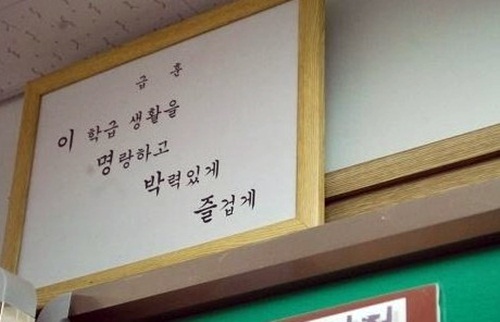 급 훈
이 학급 생활을
명랑하고
박력있게
즐겁게